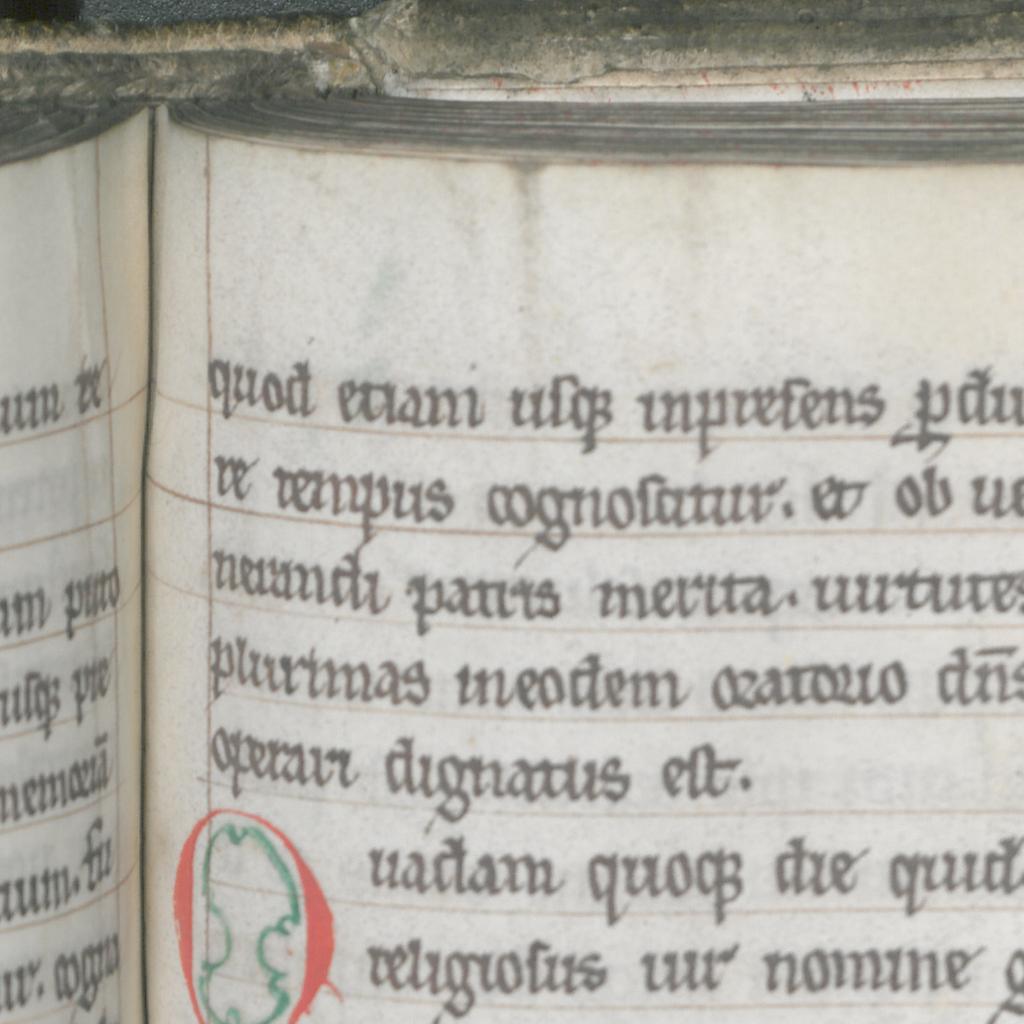 um te
am puto
usq; pre
memoriā
quod etiam usq; inpresens pdu
re tempus cognoscatur. et ob ue
nerandi patris merita. uirtutes
plurimas ineodem oratorio dn̄s
operari dignatus est.
Quadam quoq; die quid
religiosus uir nomine g